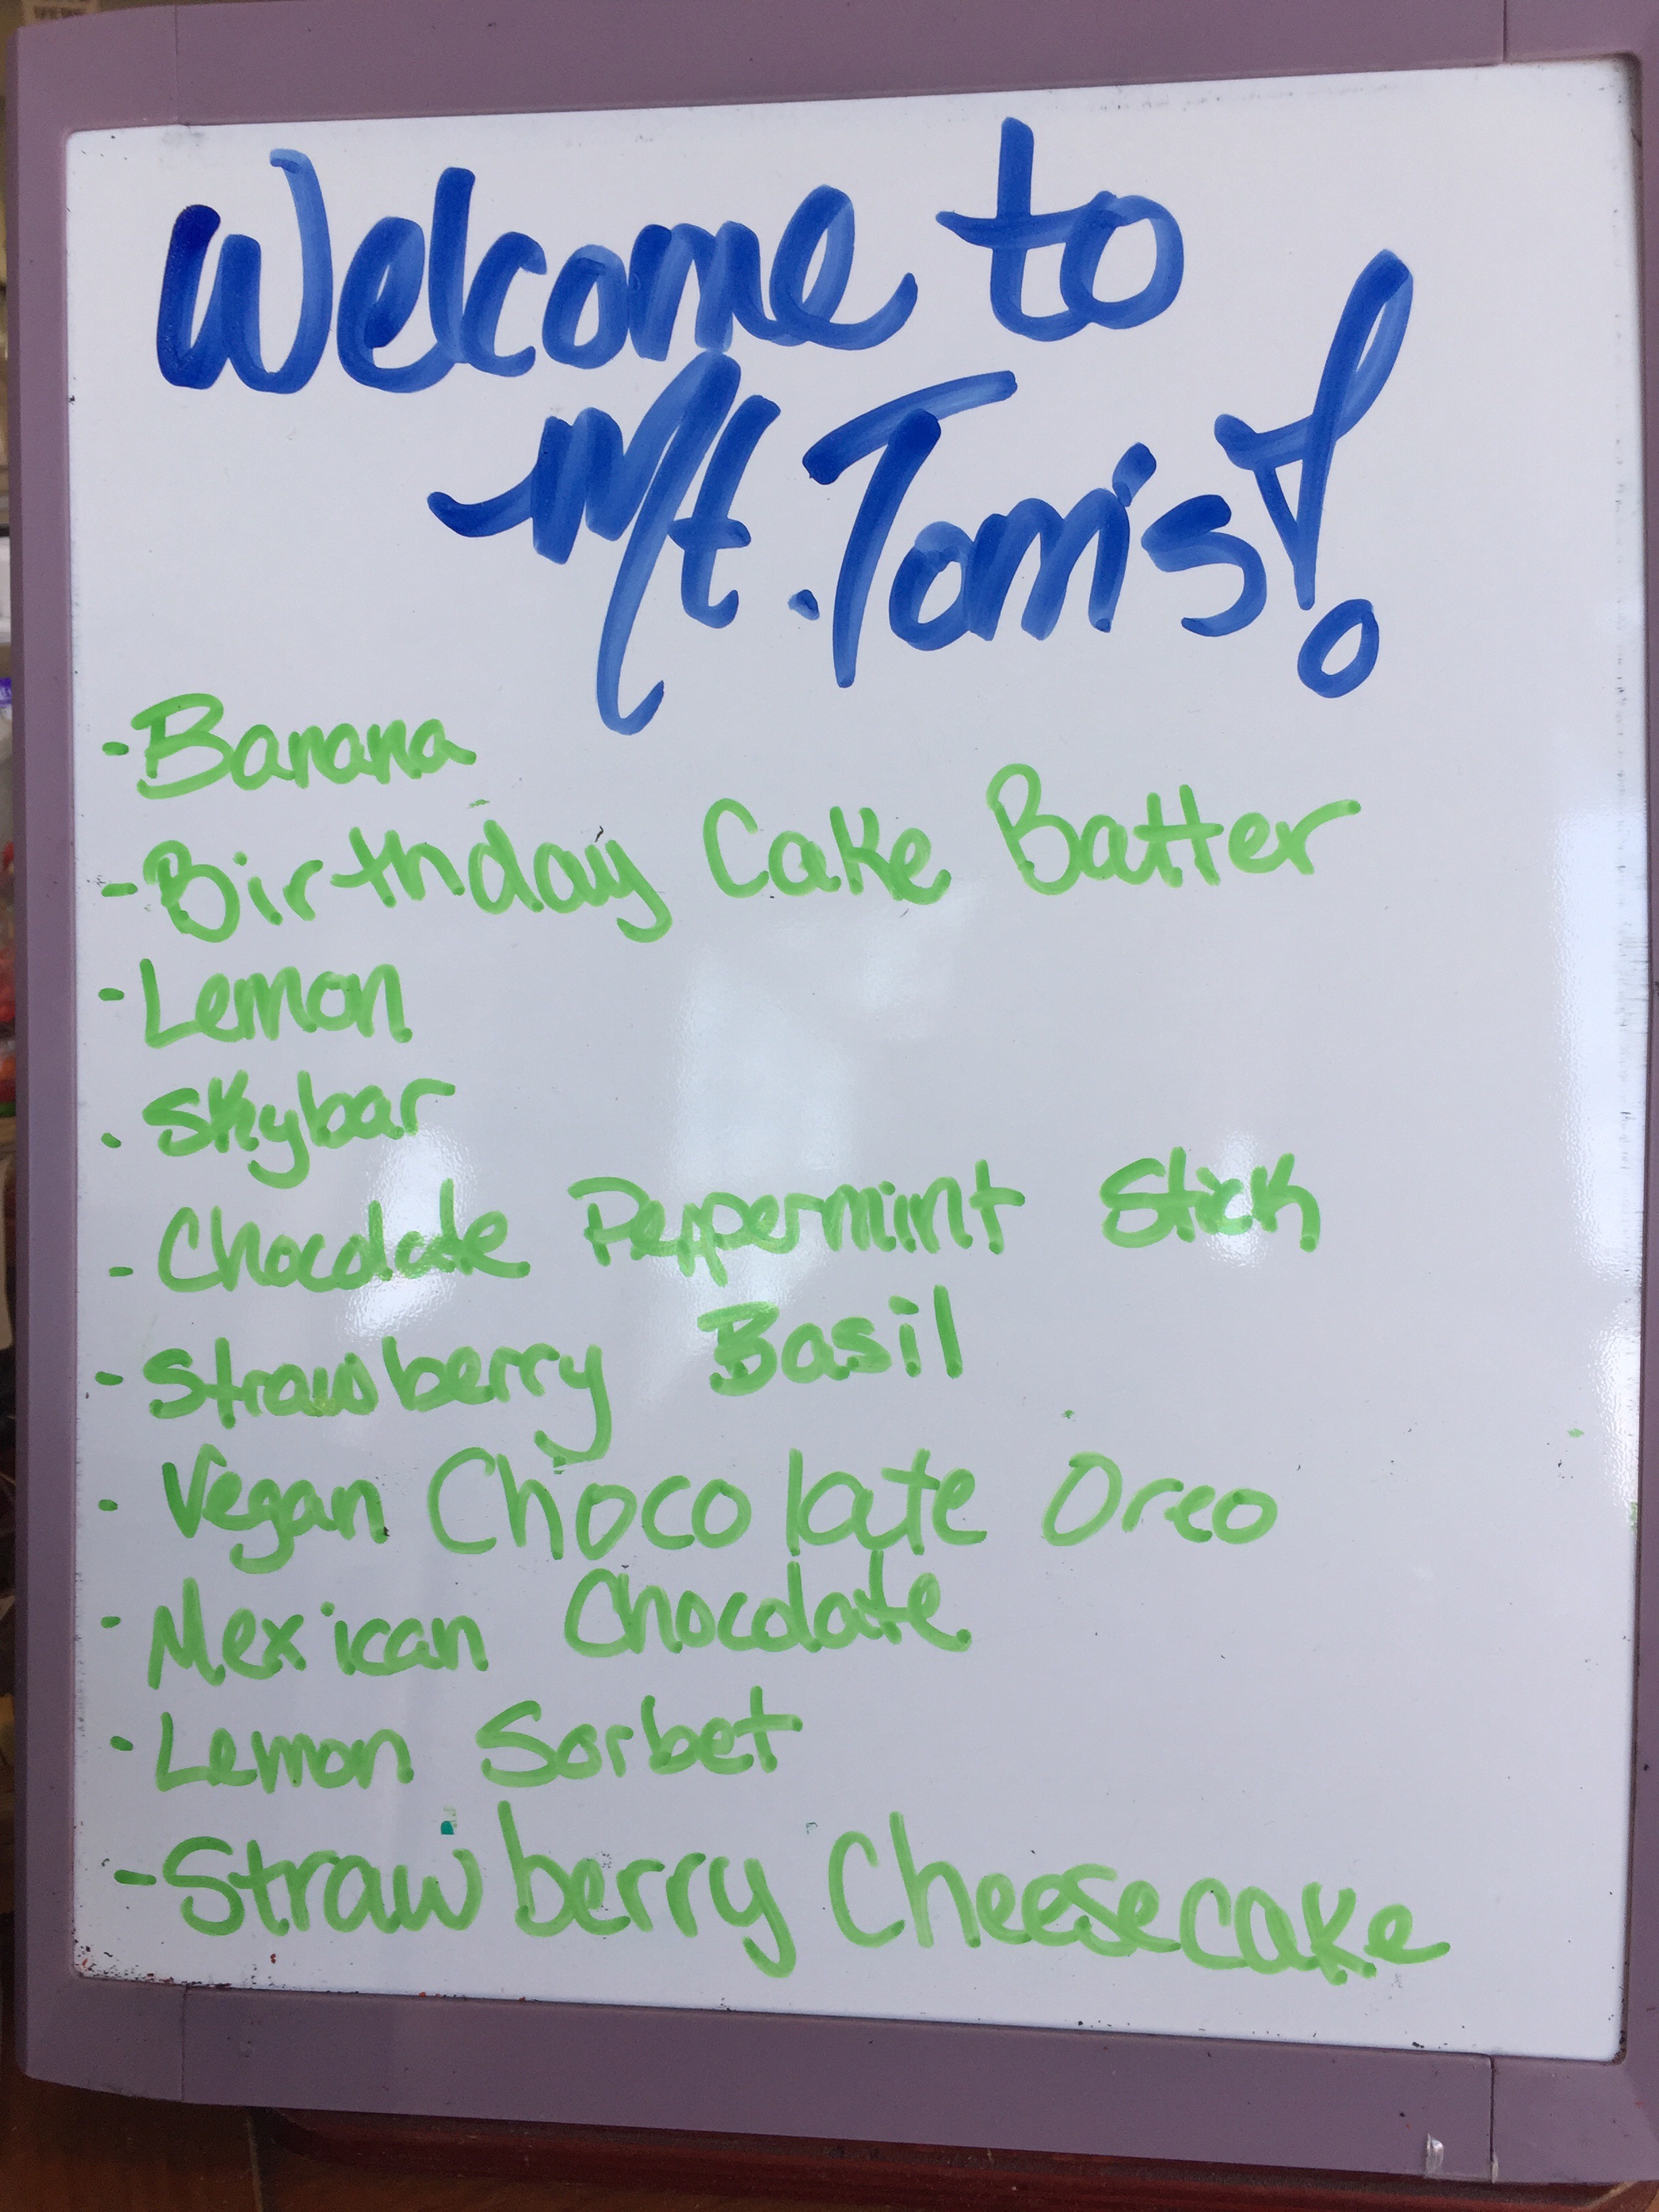 Welcome to
Mt. Tom's!
-Banana
-Birthday Cake Batter
-Lemon
-Skybar
-Chocolate Peppermint Stick
-Strawberry Basil
-Vegan Chocolate Oreo
-Mexican Chocolate
-Lemon Sorbet
-Strawberry Cheesecake